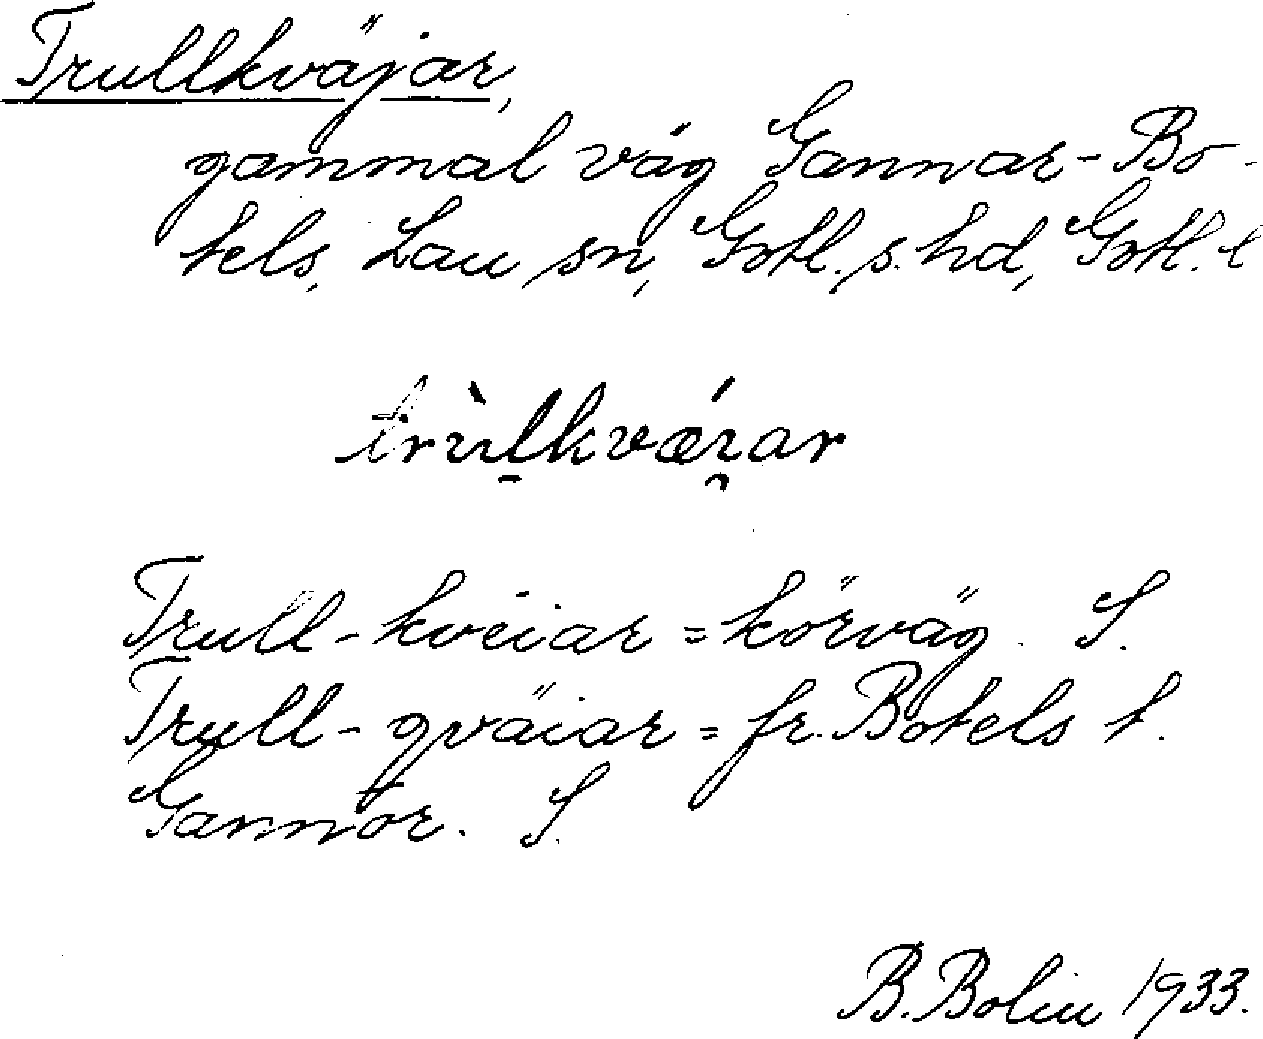 Trullkväjar,
gammal väg Gannar-Bo-
tels, Lau sn, Gotl. s. hd, Gotl. l
trùlkvǽɪar
Trull-kveiar = körväg. S.
Trull-qväiar = fr. Botels t.
Gannor. S.
B. Bolin 1933.